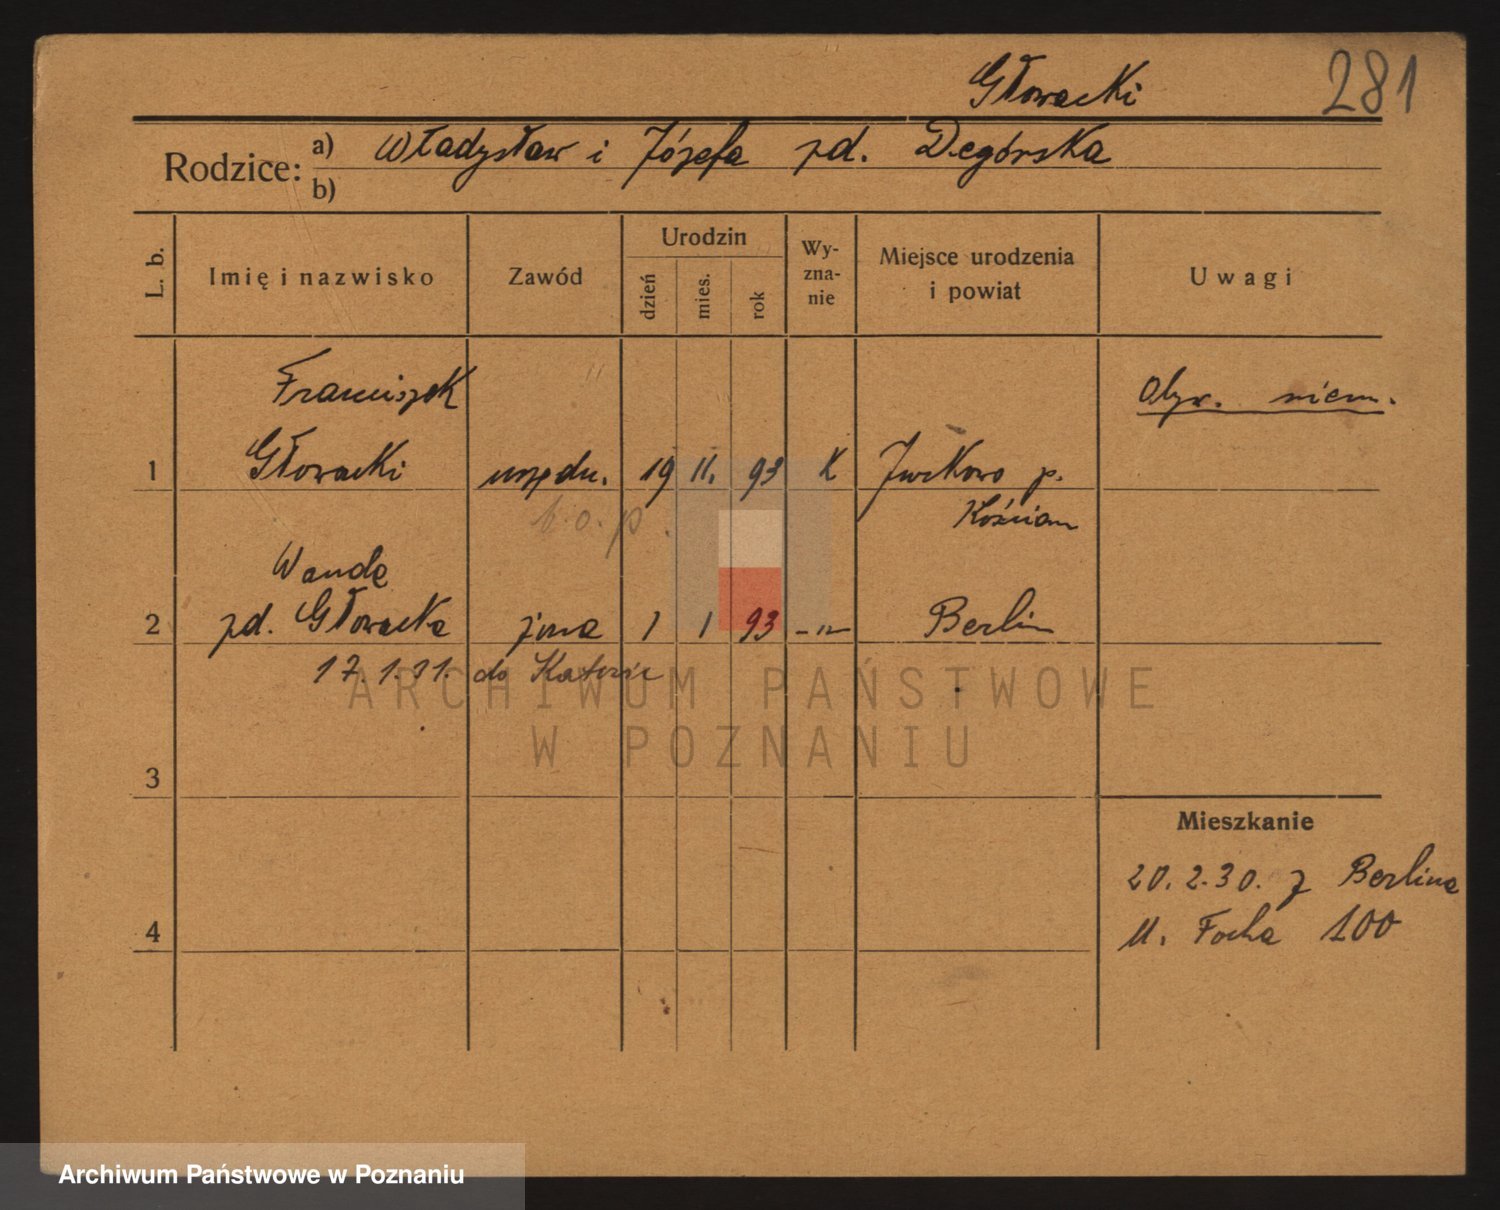 Głowacki
281
Rodzice: a) Władysław i Józefa zd. Degórska
b)
L. b.
Imię i nazwisko
Zawód
Urodzin
dzień
mies.
rok
Wy-
zna-
nie
Miejsce urodzenia
i powiat
Uwagi
Franciszek
Obyw. niem.
1 Głowacki urzędn. 19 II. 93 K p.
b. o. p.
Kościan
Wanda
2 zd. Głowacka żona 1 1 93 -"- Berlin
17.1.31. do
ARCHIWUM PAŃSTWOWE
W POZNANIU
3
Mieszkanie
20.2.30. z Berlina
4
M. Focha 100
Archiwum Państwowe w Poznaniu